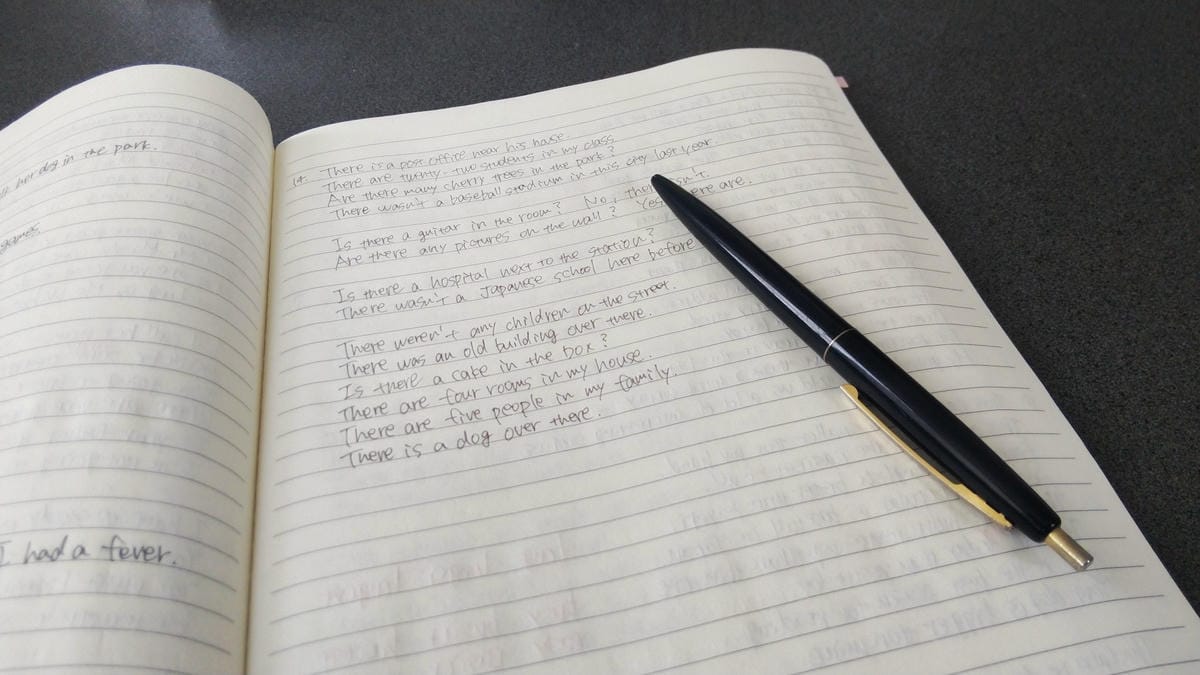 her dog in the park.
games
I had a fever.
14. There is a post office near his hause.
There are twenty-two students in my class.
Are there many cherry trees in the park?
There wasn't a baseball stadium in this city last year.
Is there a guitar in the room? No, there isn't.
Are there any pictures on the wall? Yes, there are.
Is there a hospital next to the station?
There wasn't a Japanese school here before
There weren't any children on the street.
There was an old building over there.
Is there a cake in the box?
There are four rooms in my house.
There are five people in my family.
There is a dog over there.